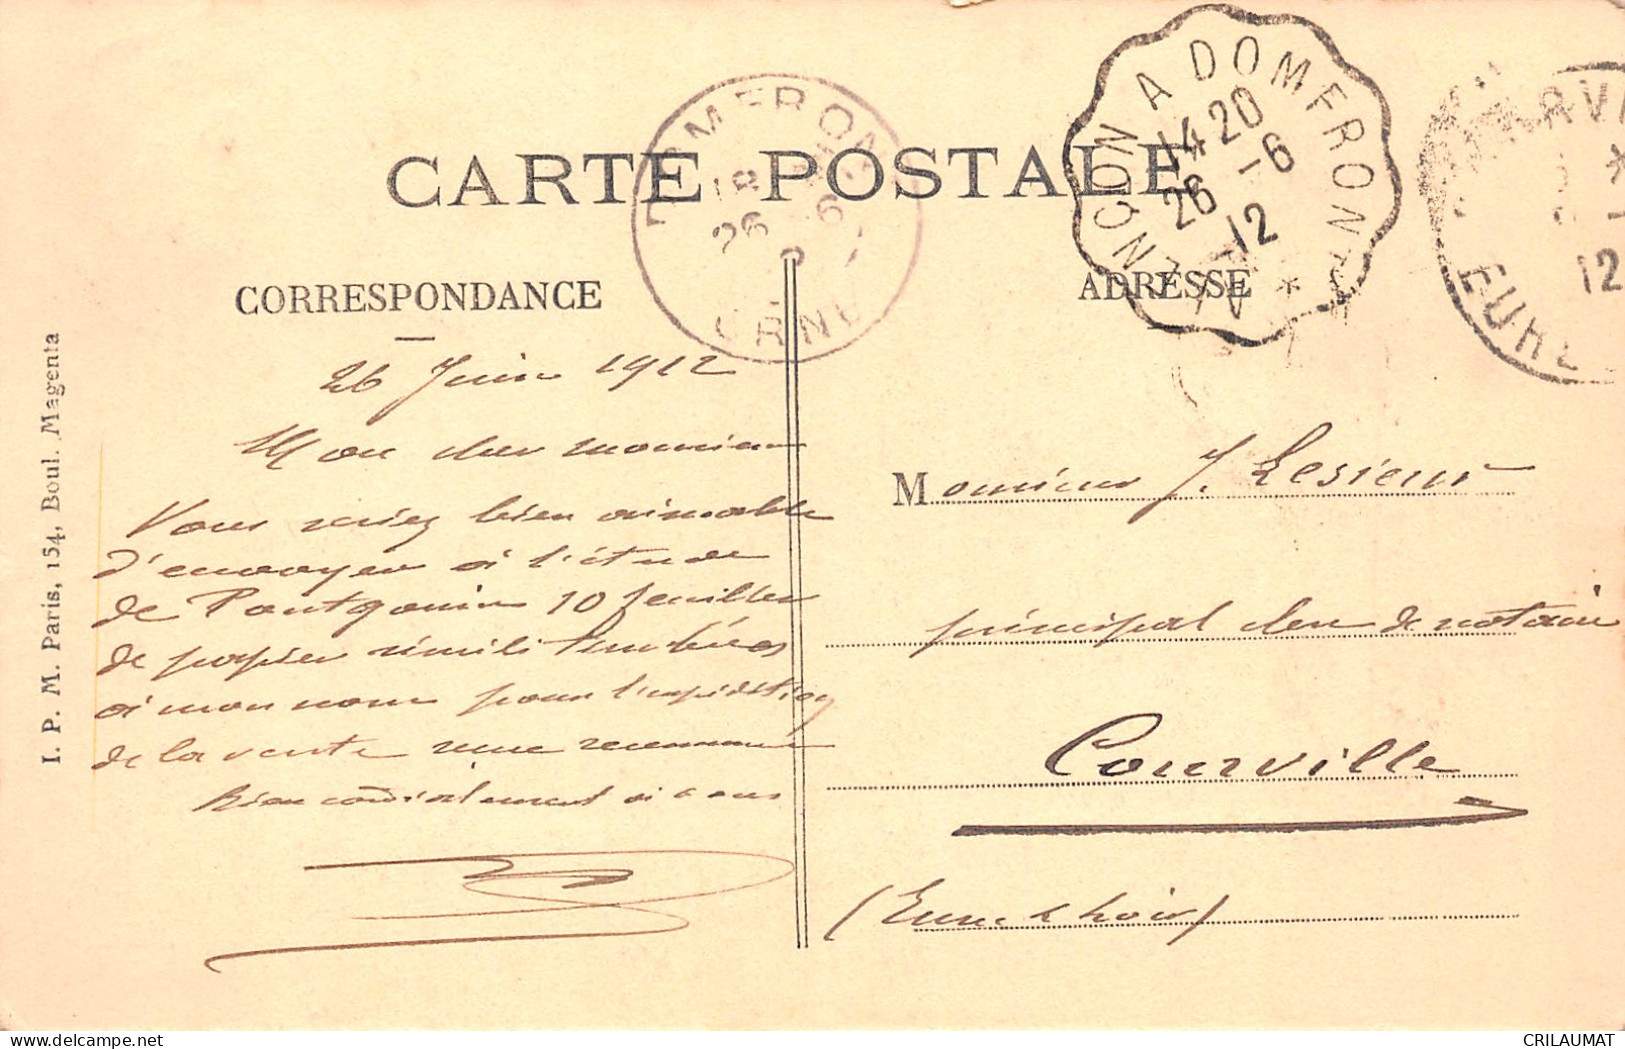 CARTE POSTALE
CORRESPONDANCE
ADRESSE
I. P. M. Paris, 154, Boul. Magenta
ALENÇON A DOMFRONT
14 20
26 -6
12
DOMFRONT
18
26 6
ORNE
EURE
12
26 Juin 1912
Mon cher monsieur
Vous seriez bien aimable
d'envoyer à l'étude
de Pontgouin 10 feuilles
de papier simili timbrées
à mon nom pour l'expédition
de la vente
bien cordialement à vous
Monsieur J. Lesieur
principal clerc de notaire
Courville
(Eure & Loir)
CRILAUMAT